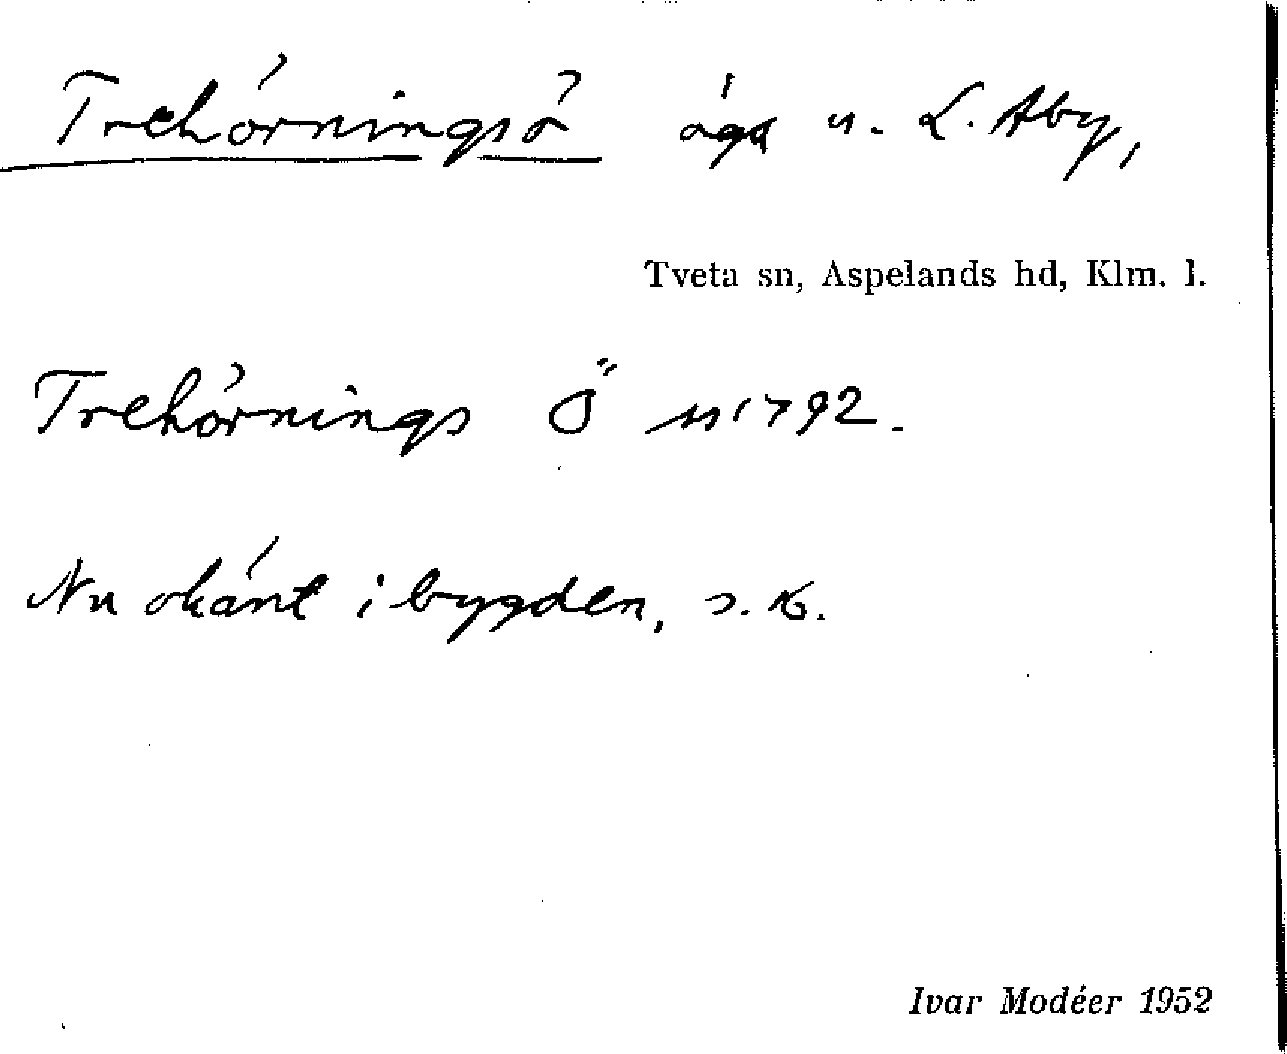 Trehörningsö äga u. L. Åby,
Tveta sn, Aspelands hd, Klm. l.
Trehörnings Ö 1792.
Nu okänt i bygden, s. K.
Ivar Modéer 1952